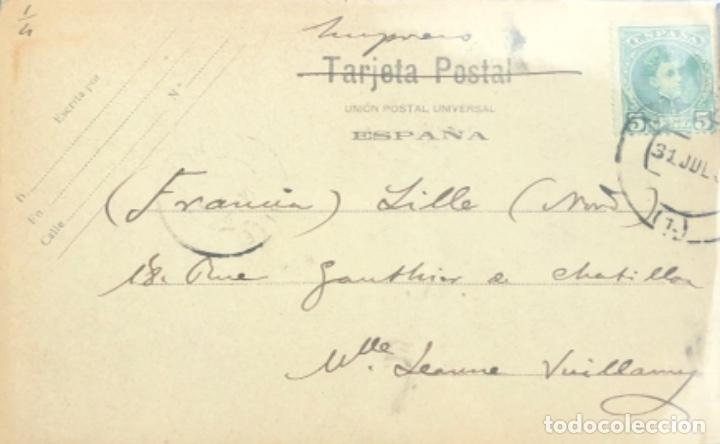 1/4
Impreso
Tarjeta Postal
UNIÓN POSTAL UNIVERSAL
ESPAÑA
Escrita por
D.
En
Calle
N.º
ESPAÑA
5 5
31 JUL
(1.)
(Francia) Lille (Nord)
18. Rue Gauthier de Chatillon
Mlle. Jeanne Vuillamy
todocoleccion.net